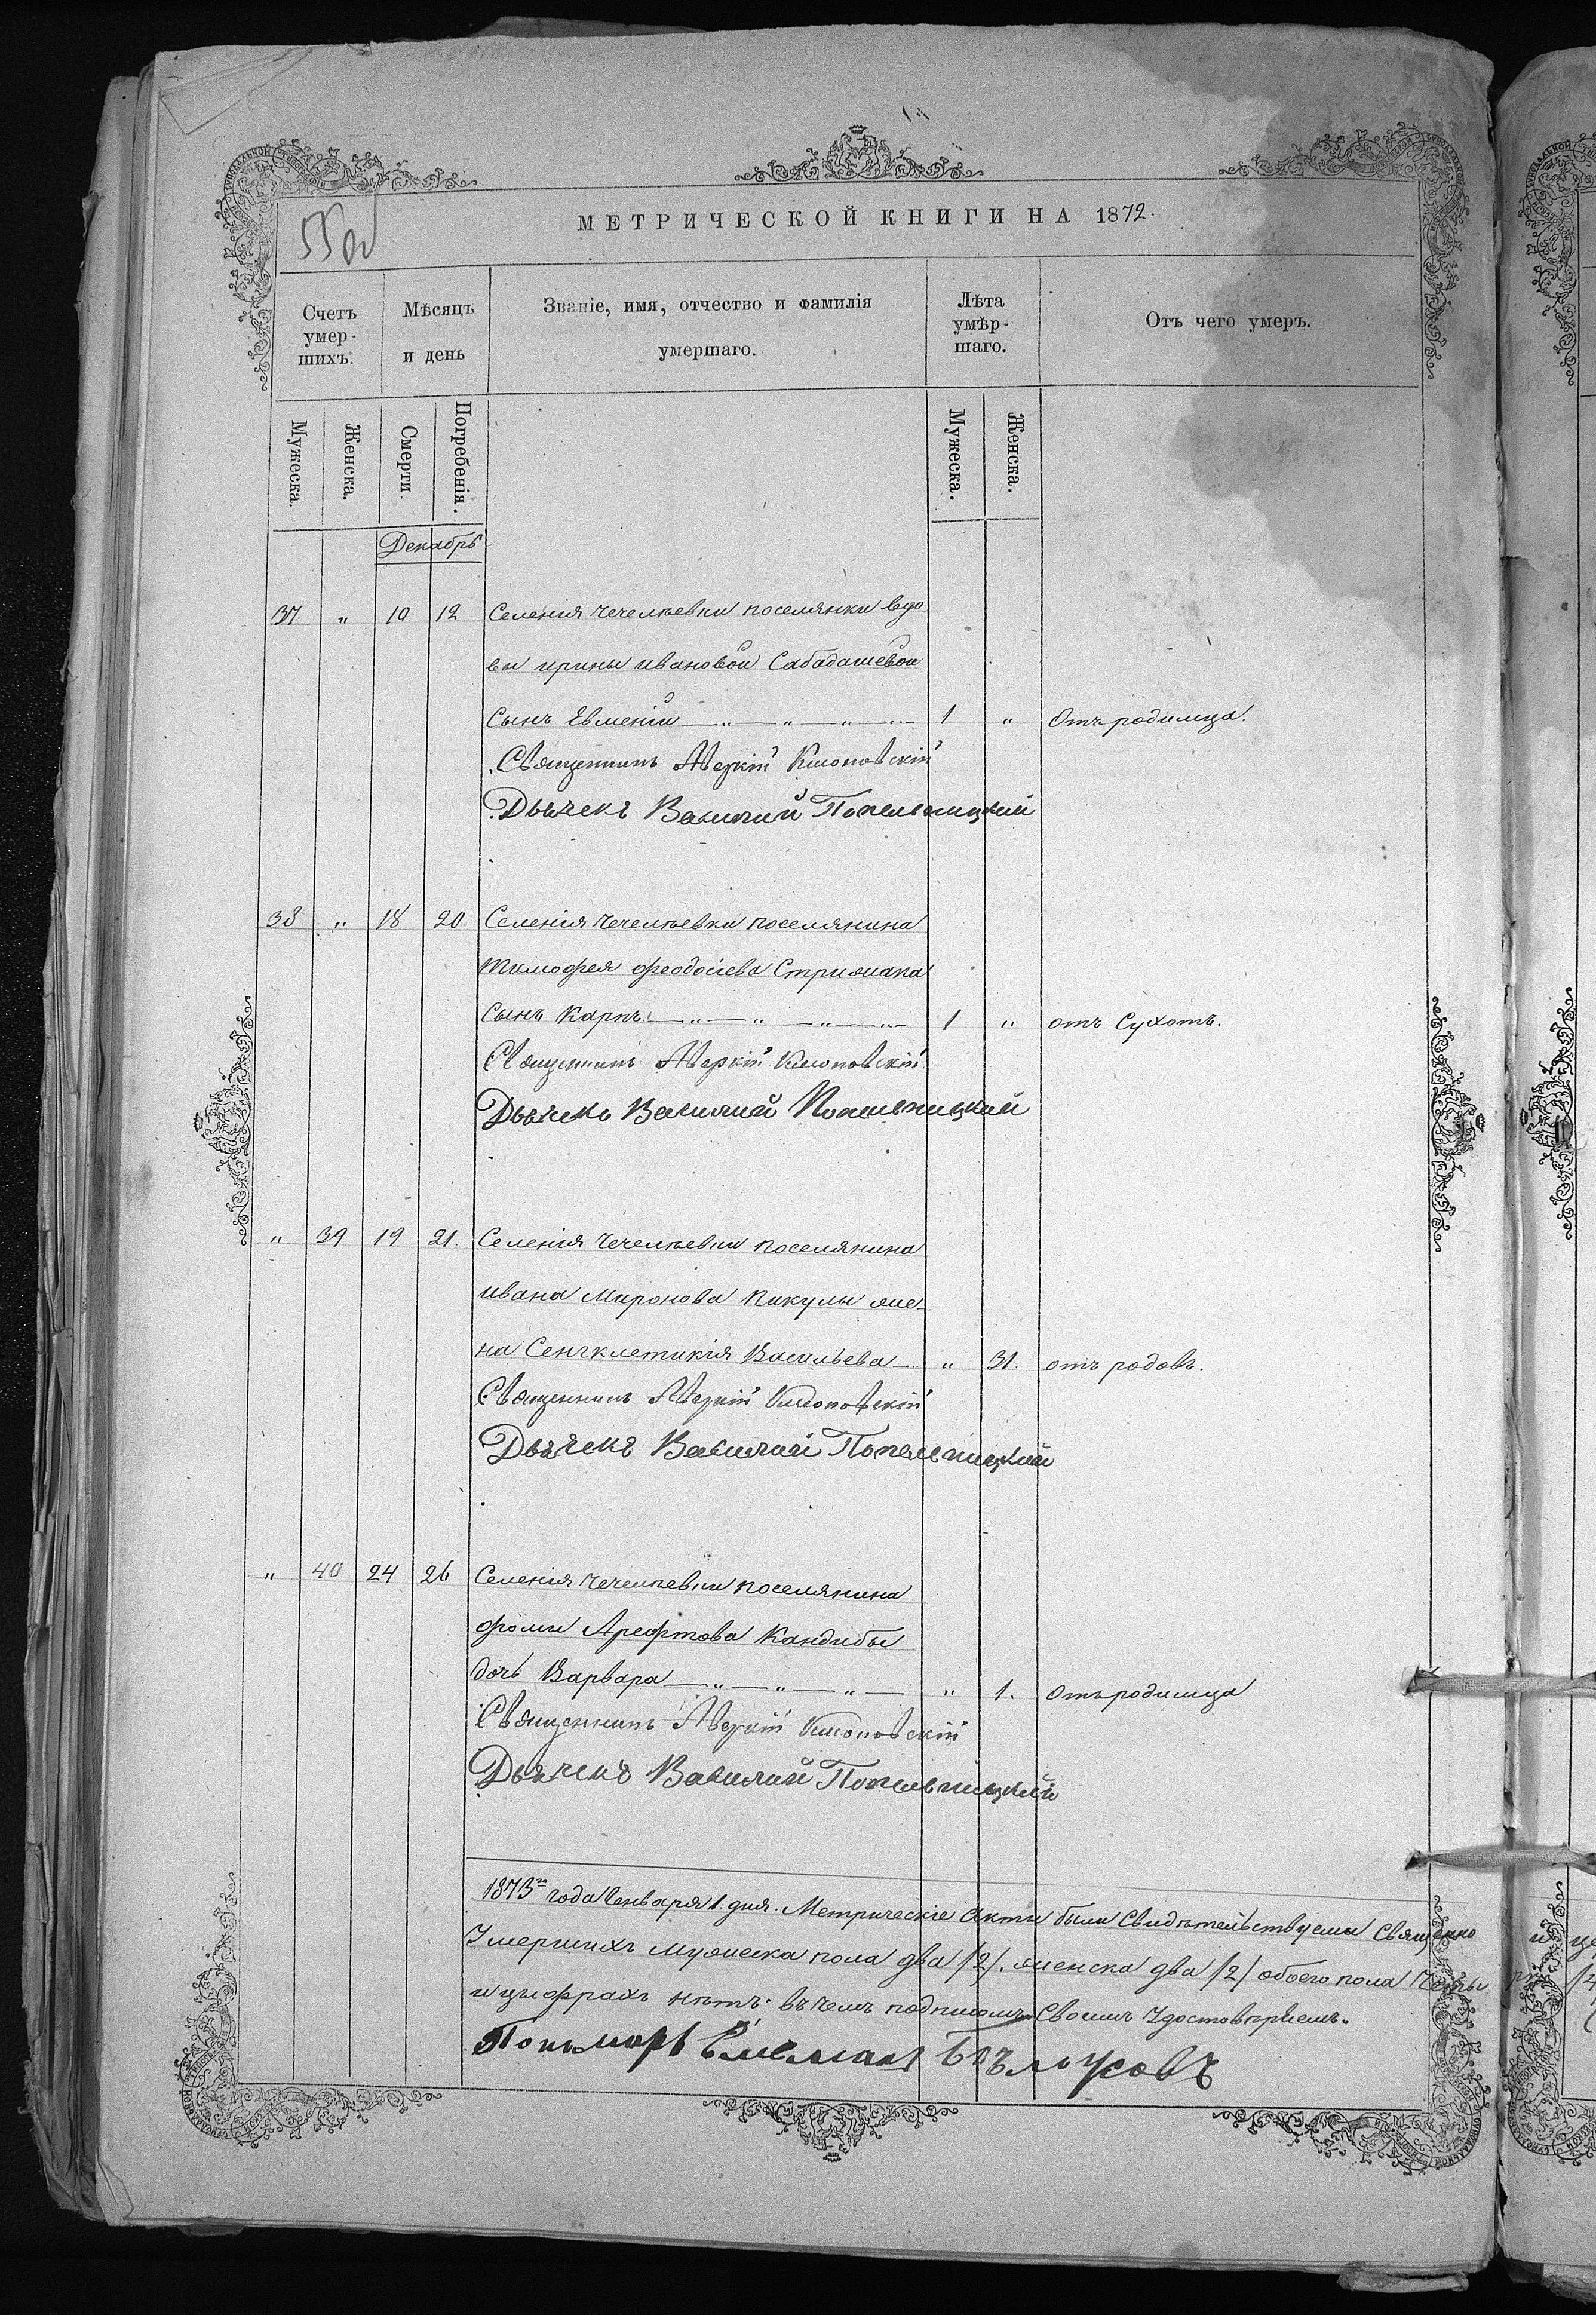 МЕТРИЧЕСКОЙ КНИГИ НА 1872.
Счетъ умер-шихъ.
Мѣсяцъ и день
Званіе, имя, отчество и фамилія умершаго.
Лѣта умѣр-шаго.
Отъ чего умеръ.
Мужеска.
Женска.
Смерти.
Погребенія.
Мужеска.
Женска.
Декабрь
37 " 10 12 Селенія Чечелѣевки поселянки вдо
вы ирины ивановой Сабадашевой
Сынъ Евменій 1 " Отъ родимца.
Священникъ Аверкій
Дьячекъ Василий Попельницкий
38 " 18 20 Селенія Чечелѣевки поселянина
Тимофея феодосіева Стрижака
Сынъ Карпъ 1 " отъ Сухотъ.
Священникъ Аверкій
Дьячекъ Василий Попельницкий
" 39 19 21. Селенія Чечелѣевки поселянина
ивана Миронова Пикулы же
на Сенъклетикія Васильева " 31. отъ родовъ.
Священникъ Аверкій
Дьячекъ Василий Попельницкий
" 40 24 26 Селенія Чечелѣевки поселянина
фомы Арефтова Кандибы
дочь Варвара " 1. Отъ родимца
Священникъ Аверкій
Дьячекъ Василий Попельницкий
1873го года Генваря 1. дня. Метрическіе Акты были Свидѣтельствуемы Священно
Умершихъ мужеска пола два /2/. женска два /2/ обоего пола Четы
и цыфрахъ нѣтъ. въ чемъ подписомъ Своимъ Удостовѣряемъ.
Пономарь Бѣлоусовъ